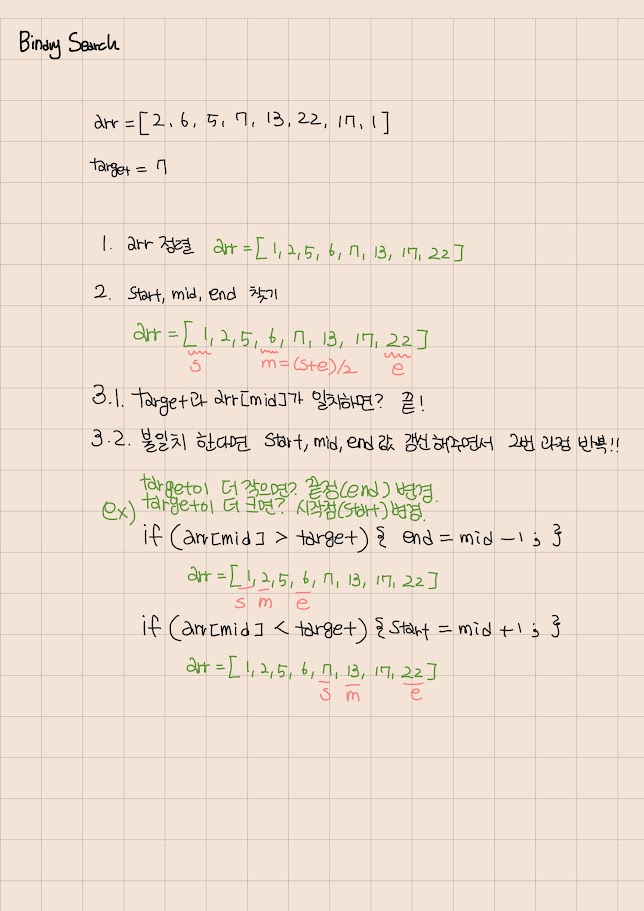 Binary Search
arr = [2, 6, 5, 7, 13, 22, 17, 1]
target = 7
1. arr 정렬 arr = [1, 2, 5, 6, 7, 13, 17, 22]
2. start, mid, end 찾기
arr = [1, 2, 5, 6, 7, 13, 17, 22]
s m=(s+e)/2 e
3.1. target과 arr[mid]가 일치하면? 끝!
3.2. 불일치 한다면 start, mid, end 값 갱신해주면서 2번 과정 반복!!
target이 더 작으면? 끝점(end) 변경.
ex) target이 더 크면? 시작점(start) 변경.
if (arr[mid] > target) { end = mid - 1 ; }
arr = [1, 2, 5, 6, 7, 13, 17, 22]
s m e
if (arr[mid] < target) { start = mid + 1 ; }
arr = [1, 2, 5, 6, 7, 13, 17, 22]
s m e